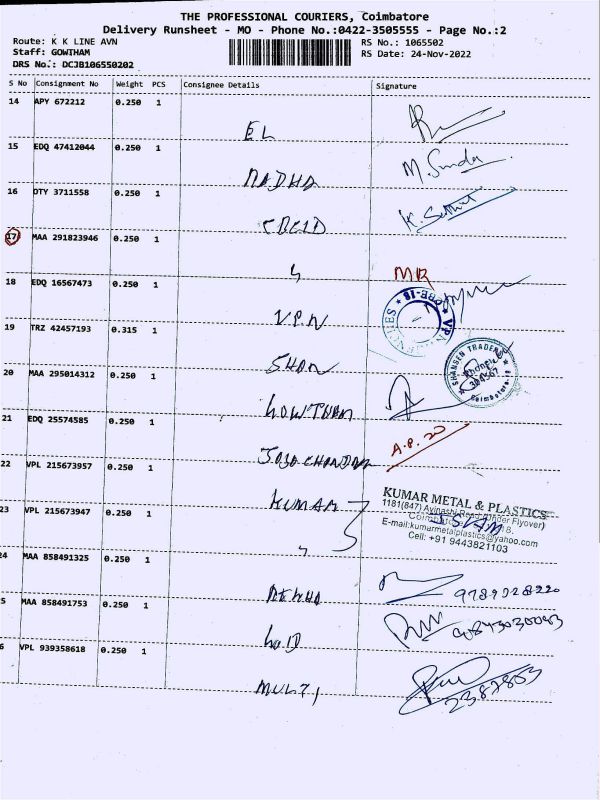 THE PROFESSIONAL COURIERS, Coimbatore
Delivery Runsheet - MO - Phone No.:0422-3505555 - Page No.:2
Route: K K LINE AVN
RS No.: 1065502
Staff: GOWTHAM
RS Date: 24-Nov-2022
DRS No.: DCJB106550202
S No Consignment No Weight PCS Consignee Details Signature
14 APY 672212 0.250 1
EL
15 EDQ 47412044 0.250 1
MADHA M.Sunda
16 DTY 3711558 0.250 1
K. Sathil
17 MAA 291823946 0.250 1
" MR
18 EDQ 16567473 0.250 1
V.P.N
19 TRZ 42457193 0.315 1
SHAN
SHANSEN TRADERS
Phone
Coimbatore
20 MAA 295014312 0.250 1
GOWTHAM
21 EDQ 25574585 0.250 1
A.P. 20
22 VPL 215673957 0.250 1
KUMAR
KUMAR METAL & PLASTICS
1181(847) Avinashi Road (Under Flyover)
E-mail:kumarmetalplastics@yahoo.com
Cell: +91 9443821103
23 VPL 215673947 0.250 1
"
24 MAA 858491325 0.250 1
9789028220
5 MAA 858491753 0.250 1
6 VPL 939358618 0.250 1
MULTI
2387803